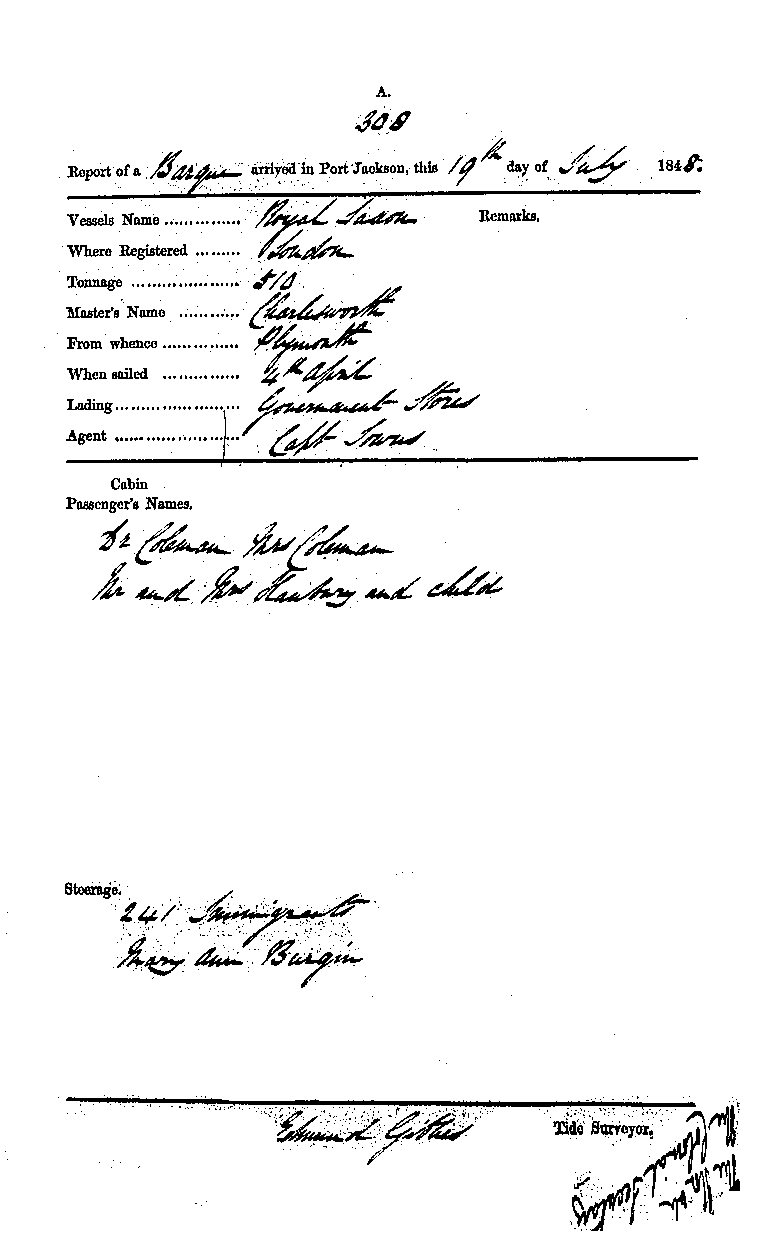 A.
308
Report of a Barque arrived in Port Jackson, this 19th day of July 1848.
Vessels Name .............. Royal Saxon Remarks.
Where Registered ......... London
Tonnage .................... 510
Master's Name ........... Charlesworth
From whence .............. Plymouth
When sailed .............. 4th April
Lading....................... Government Stores
Agent ....................... Capt Towns
Cabin
Passenger's Names.
Dr Coleman Mrs Coleman
Mr and Mrs Hanbury and child
Steerage.
241 Immigrants
Mary Ann Burgin
Edmund Gibbes Tide Surveyor.
The Hon
The Colonial Secretary